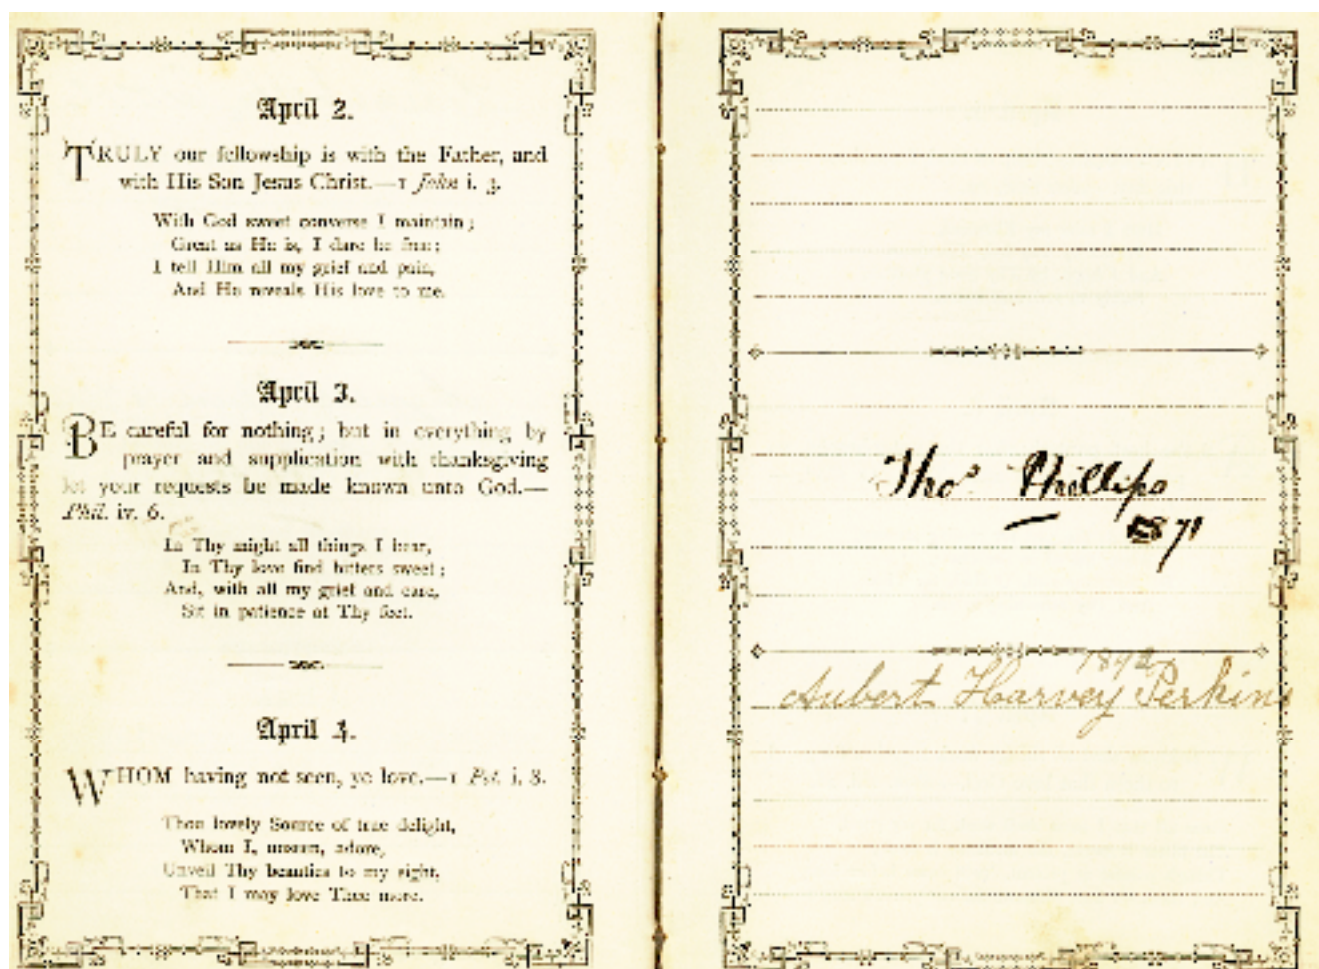 April 2.
TRULY our fellowship is with the Father, and
with His Son Jesus Christ.—1 John i. 3.
With God sweet converse I maintain;
Great as He is, I dare be free;
I tell Him all my grief and pain,
And He reveals His love to me.
April 3.
BE careful for nothing; but in everything by
prayer and supplication with thanksgiving
let your requests be made known unto God.—
Phil. iv. 6.
In Thy might all things I bear,
In Thy love find bitters sweet;
And, with all my grief and care,
Sit in patience at Thy feet.
April 4.
WHOM having not seen, ye love.—1 Pet. i. 8.
Thou lovely Source of true delight,
Whom I, unseen, adore,
Unveil Thy beauties to my sight,
That I may love Thee more.
Thos Phillips
1871
1892
Aubert Harvey Perkins